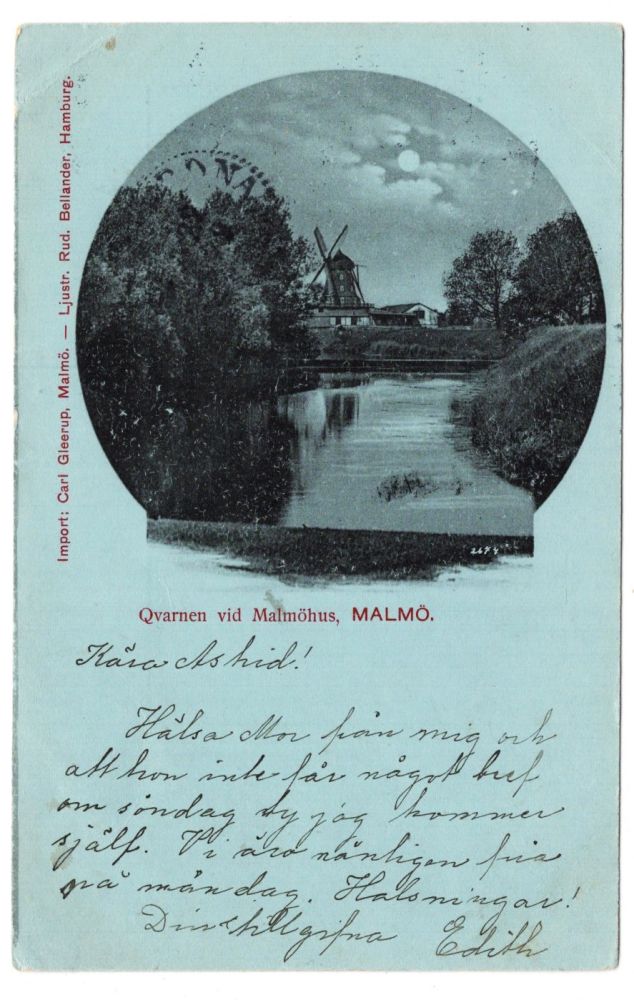 Import: Carl Gleerup, Malmö. — Ljustr. Rud. Bellander, Hamburg.
2674
Qvarnen vid Malmöhus, MALMÖ.
Kära Astrid!
Hälsa Mor från mig och
att hon inte får något bref
om söndag ty jag kommer
själf. Vi äro nämligen fria
på måndag. Halsningar!
Din tillgifna Edith